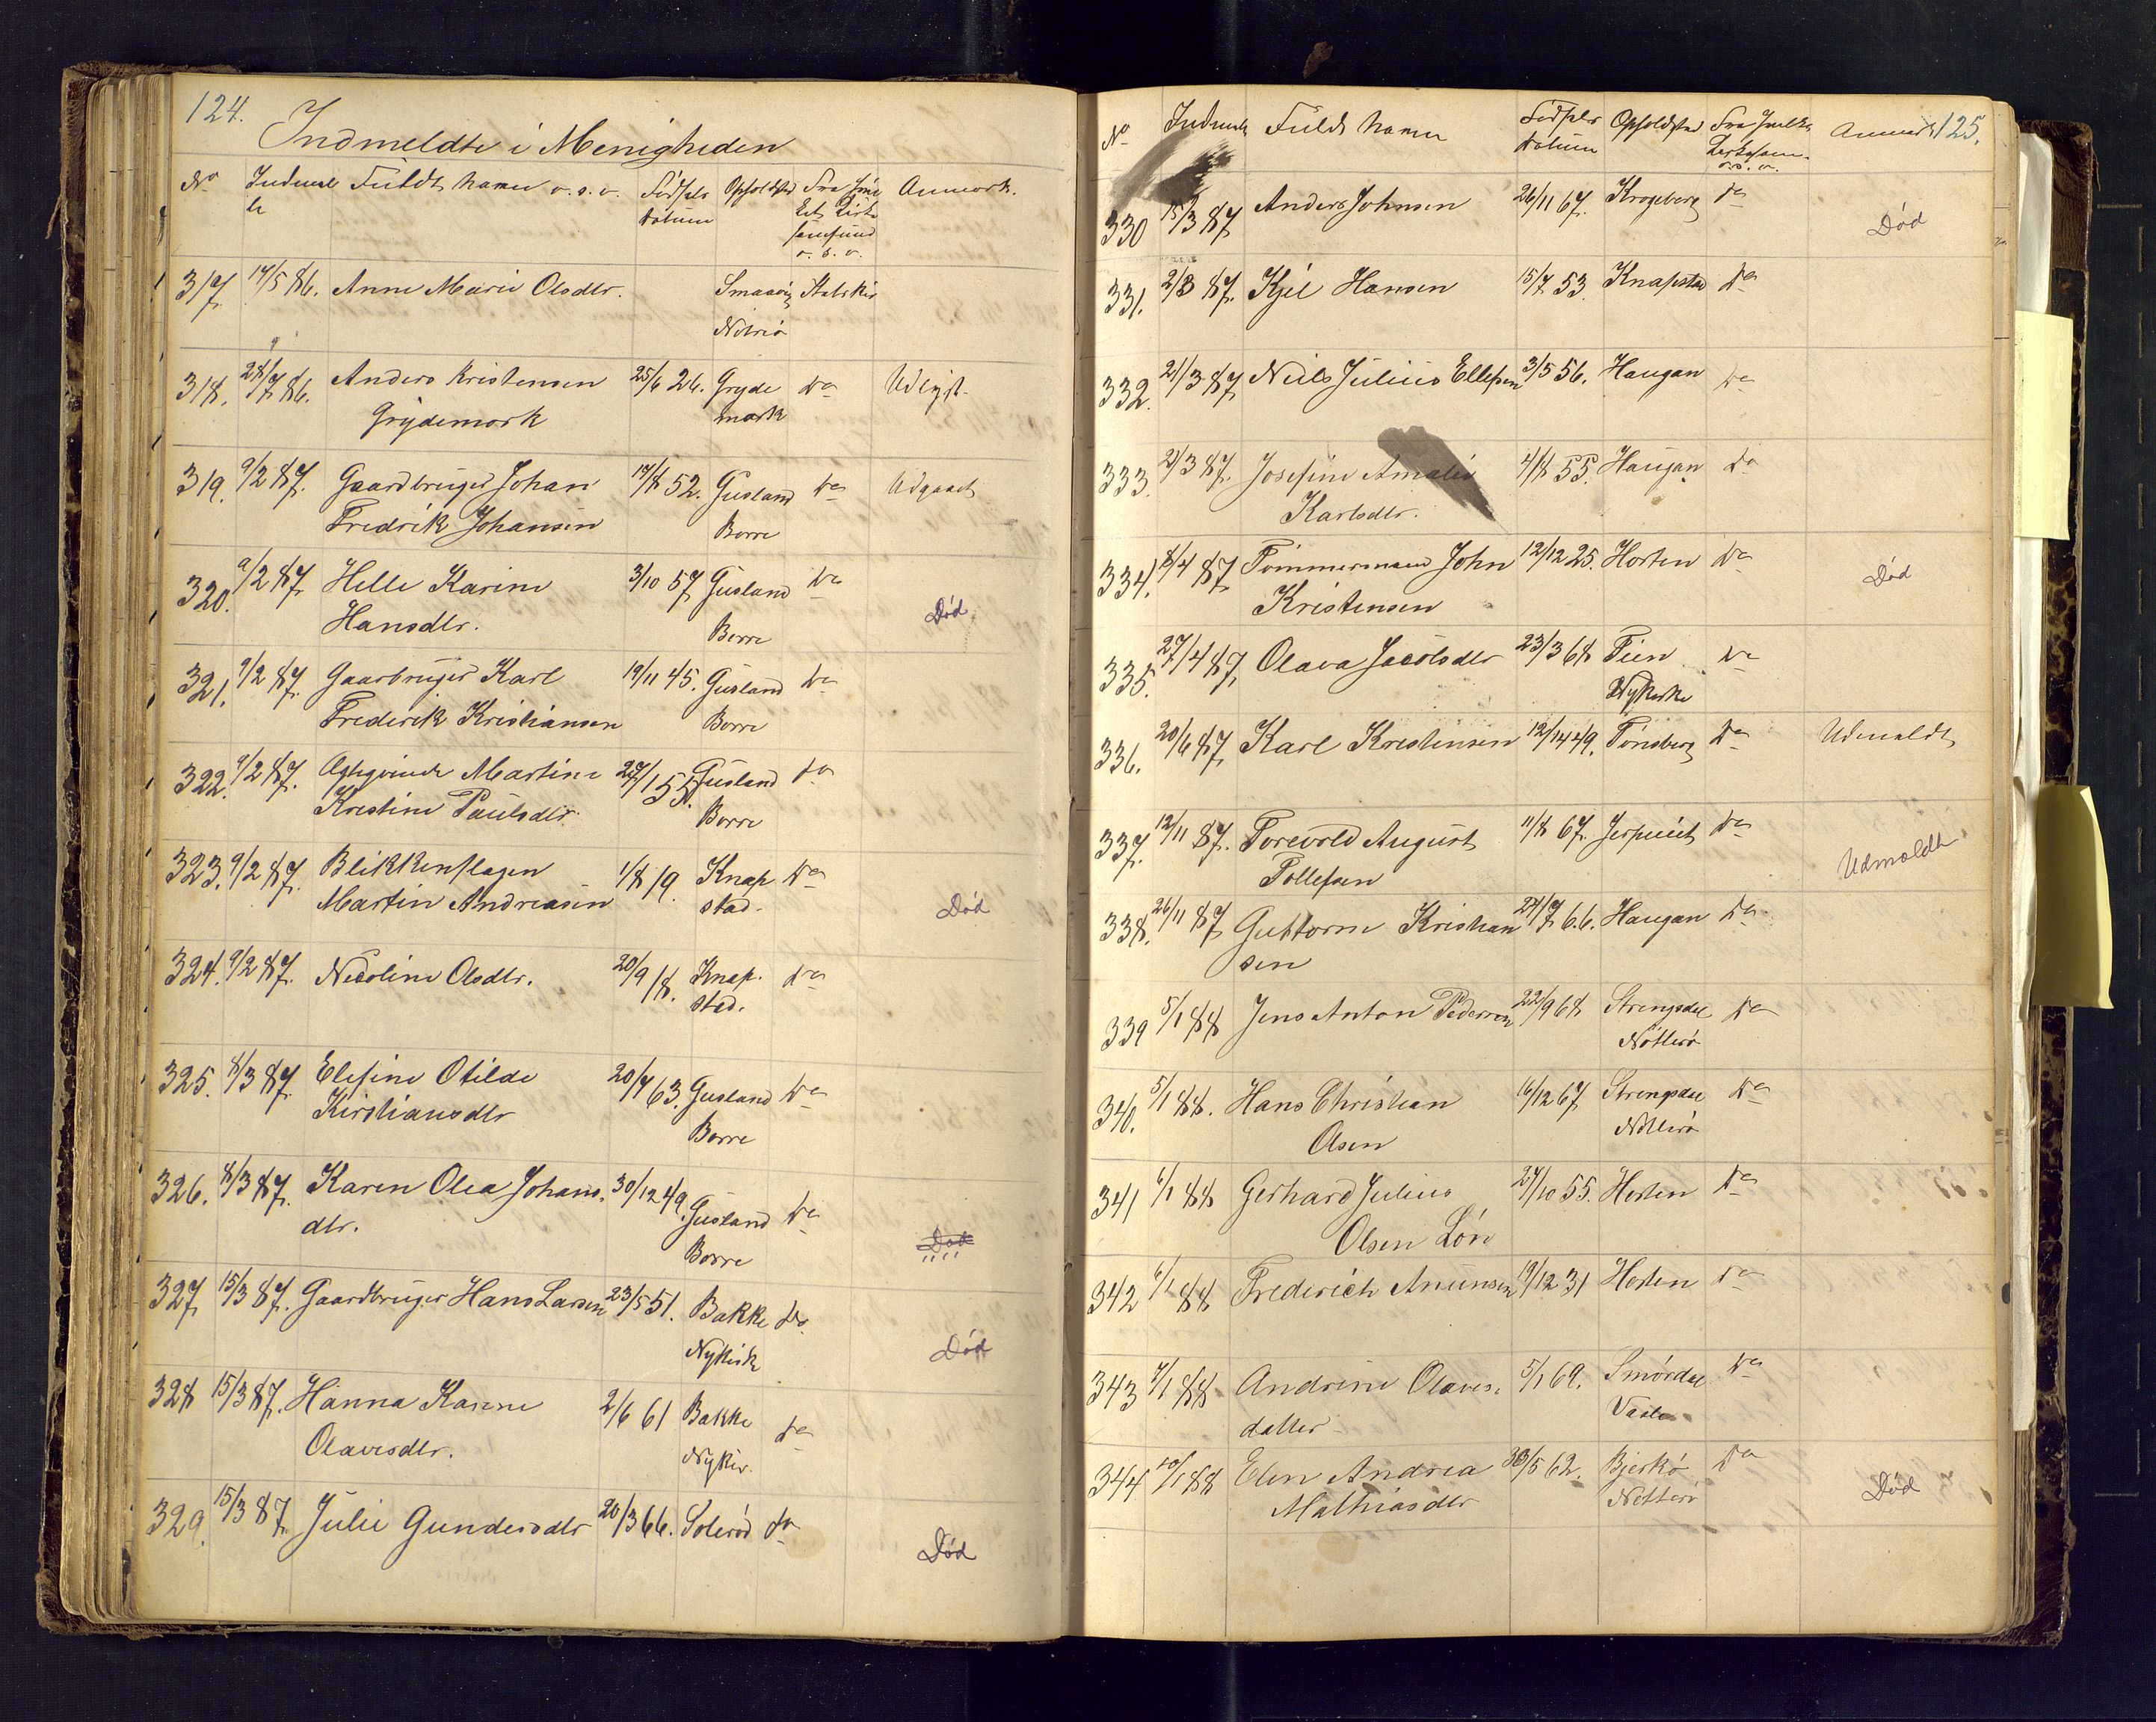 124.
Indmeldte i Menigheden
No Indmel Fuldt Navn o.s.v. Fødsels Opholdsted Fra Anmerk.
te Datum
samfund
o.s.v.
317. 17/5 86. Anne Marie Olsdtr. Smaavig Statskir
Nøtrø
318. 28/7 86. Anders Kristensen 25/6 26. Gryde Do Udlyst.
Grydemork mork
319. 9/2 87. Gaardbruger Johan 17/8 52. Gusland Do Udgaaet
Fredrik Johansen Borre
320. 9/2 87. Helle Karine 3/10 57 Gusland Do Død
Hansdtr. Borre
321. 9/2 87. Gaarbruger Karl 19/11 45. Gusland Do
Frederik Kristiansen Borre
322. 9/2 87. Martine Gusland Do
Kristine Paulsdtr. Borre
323. 9/2 87. Blikkenslager 1/8 19. Knap Do
Martin Andreasen stad. Død
324. 9/2 87. Nicoline Olsdtr. 20/9 18. Knap. Do
stad.
325. 8/3 87. Elefine Otilde 20/7 63. Gusland Do
Kirstiansdtr Borre
326. 8/3 87. Karen Olea Johans. 30/12 49. Gusland Do
dtr. Borre Død
327 15/3 87. Gaardbruger Hans Larsen 23/5 51. Bakke Do.
Nykirk Død
328 15/3 87. Hanna Karine 2/6 61 Bakke Do
Olavesdtr. Nykir.
329. 15/3 87. Julie Gundersdtr 20/3 66. Solerød Do
Død
125.
No Indmel Fuldt Navn Fødsels Opholdsted Fra Anmerk
Datum
o.s.v.
330 15/3 87 Anders Johnsen 26/11 67. Krogeberg Do
Død
331. 2/3 87. Kjel Hansen 15/7 53. Knapstad Do
332. 21/3 87 Niels Julius Ellefsen 3/5 56. Haugan Do
333. 21/3 87. Josefine Amalie 4/8 55. Haugan Do
Karlsdtr.
334. 8/4 87. Tømmermand John 12/12 25. Horten Do Død
Kristensen
335. 27/4 87, Olava Jacobsdtr 23/3 68 Fien Do
Nykirke
336. 20/6 87, Karl Kristensen 49. Tønsberg Do Udmeldt
337. 12/11 87. Torevold August 11/8 67. Do Udmeldt
Tollefsen
338. 26/11 87 Guttorm Kristian 24/7 66. Haugan Do
sen
339 5/1 88 Jens Anton Pedersen 22/9 68 Strengsdal Do
Nøtterø
340. 5/1 88. Hans Christian 16/12 67 Strengsdal Do
Olsen Nøtterø
341 6/1 88 Gerhard Julius 27/10 55. Horten Do
Olsen Løn
342 6/1 88 Frederich Amunsen 19/12 31 Horten Do
343 7/1 88 Andrine Olaves. 5/1 69. Smørdal Do
datter Vaale
344 20/1 88 Elen Andrea 30/5 62. Bjerkø Do
Mathiasdtr Nøtterø Død